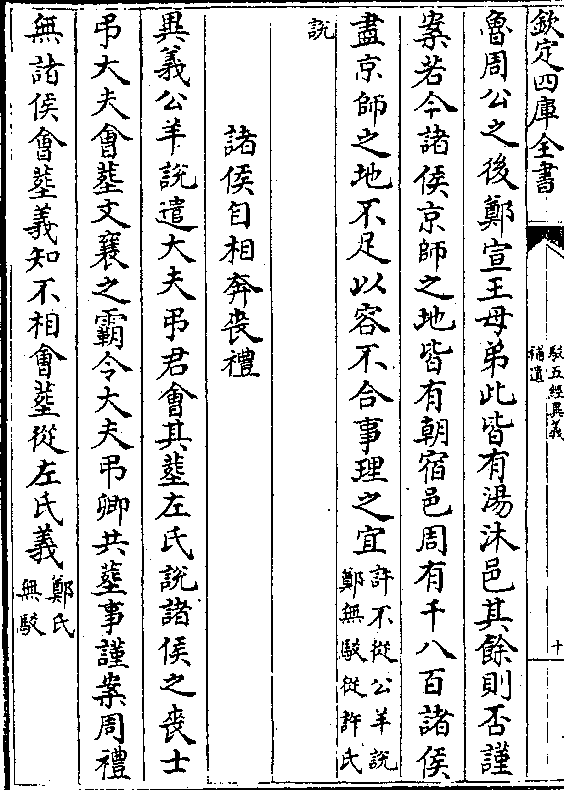 欽定四庫全書
駁五經異義
補遺
十
魯周公之後鄭宣王母弟此皆有湯沐邑其餘則否謹
案若今諸侯京師之地皆有朝宿邑周有千八百諸侯
盡京師之地不足以容不合事理之宜許不從公羊說
鄭無駁從許氏
說
諸侯自相奔喪禮
異義公羊說遣大夫弔君會其塟左氏說諸侯之喪士
弔大夫會塟文襄之霸令大夫弔卿共塟事謹案周禮
無諸侯會塟義知不相會塟從左氏義鄭氏
無駁